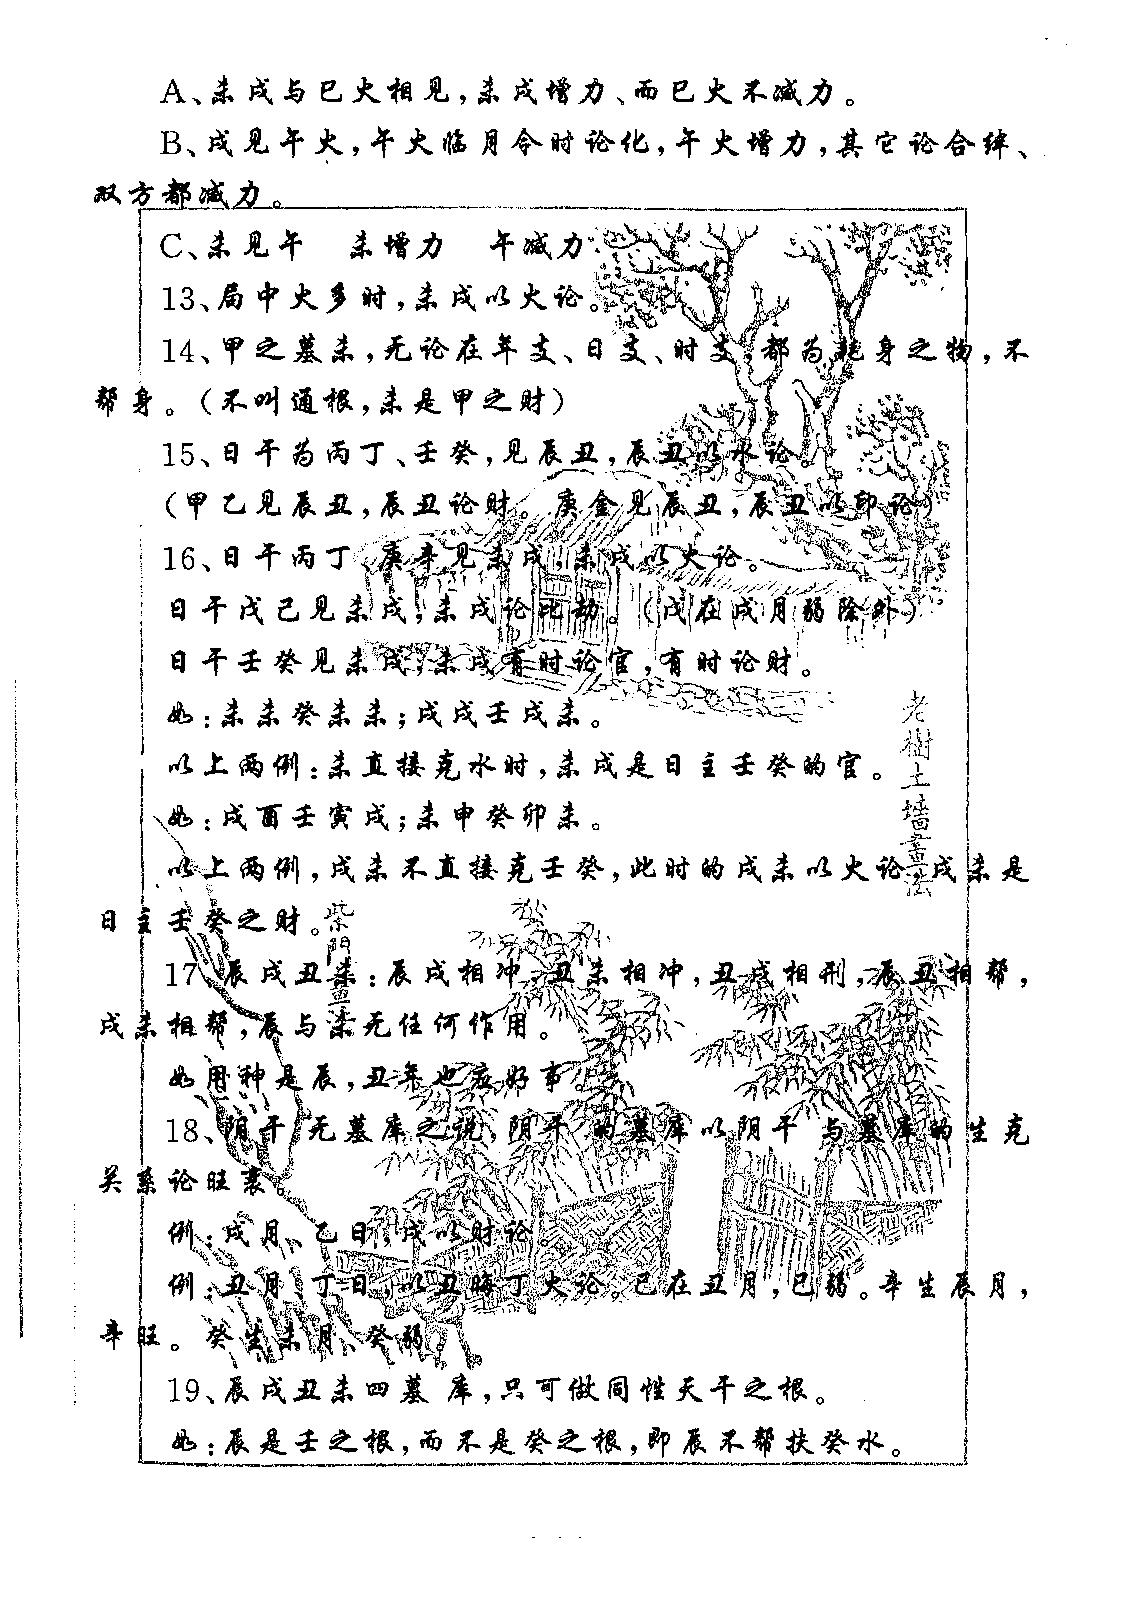 A、未戌与巳火相见,未戌增力、而巳火不减力。
B、戌见午火,午火临月令时论化,午火增力,其它论合绊、
双方都减力。
C、未见午 未增力 午减力
13、局中火多时,未戌以火论。
14、甲之墓未,无论在年支、日支、时支,都为耗身之物,不
帮身。(不叫通根,未是甲之财)
15、日干为丙丁、壬癸,见辰丑,辰丑以水论。
(甲乙见辰丑,辰丑论财。庚金见辰丑,辰丑以印论)
16、日干丙丁、庚辛见未戌,未戌以火论。
日干戊己见未戌,未戌论比劫。(戊在戌月弱除外)
日干壬癸见未戌,未戌有时论官,有时论财。
如:未未癸未未;戌戌壬戌未。
以上两例:未直接克水时,未戌是日主壬癸的官。
如:戌酉壬寅戌;未申癸卯未。
以上两例,戌未不直接克壬癸,此时的戌未以火论,戌未是
日主壬癸之财。
17、辰戌丑未:辰戌相冲,丑未相冲,丑戌相刑,辰丑相帮,
戌未相帮,辰与未无任何作用。
如用种是辰,丑年也应好事。
18、阴干无墓库之说,阴干的墓库以阴干与墓库的生克
关系论旺衰。
例:戌月、乙日,戌以财论。
例:丑月丁日,以丑晦丁火论。己在丑月,己弱。辛生辰月,
辛旺。癸生未月、癸弱
19、辰戌丑未四墓库,只可做同性天干之根。
如:辰是壬之根,而不是癸之根,即辰不帮扶癸水。
老樹土墙畫法
柴門畫法